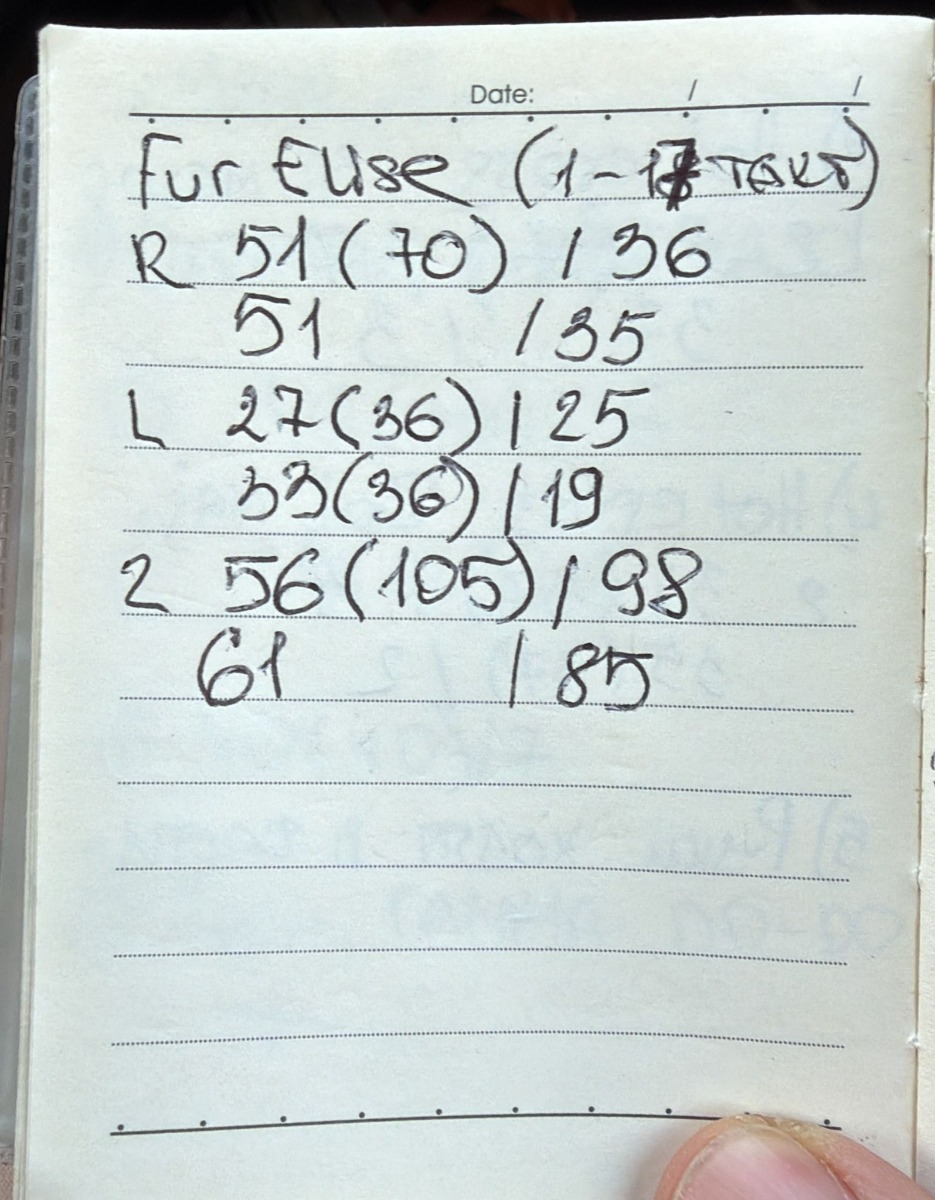 Date: / /
Fur Elise (1-17 такт)
R 51(70) / 36
51 / 35
L 27(36) / 25
33(36) / 19
2 56(105) / 98
61 / 85